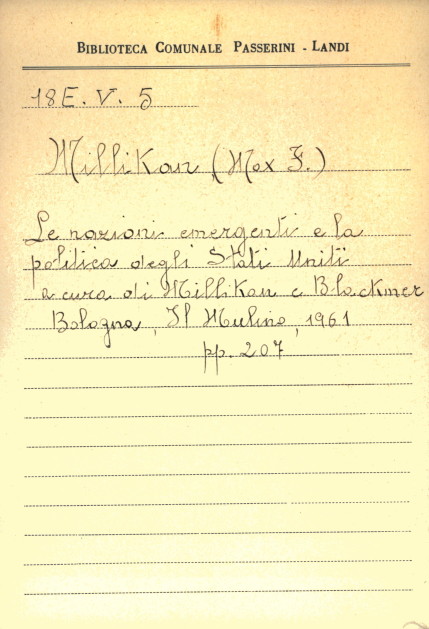 BIBLIOTECA COMUNALE PASSERINI - LANDI
18 E. V. 5
Millikan (Max F.)
Le nazioni emergenti e la
politica degli Stati Uniti
a cura di Millikan e Blackmer
Bologna, Il Mulino, 1961
pp. 207